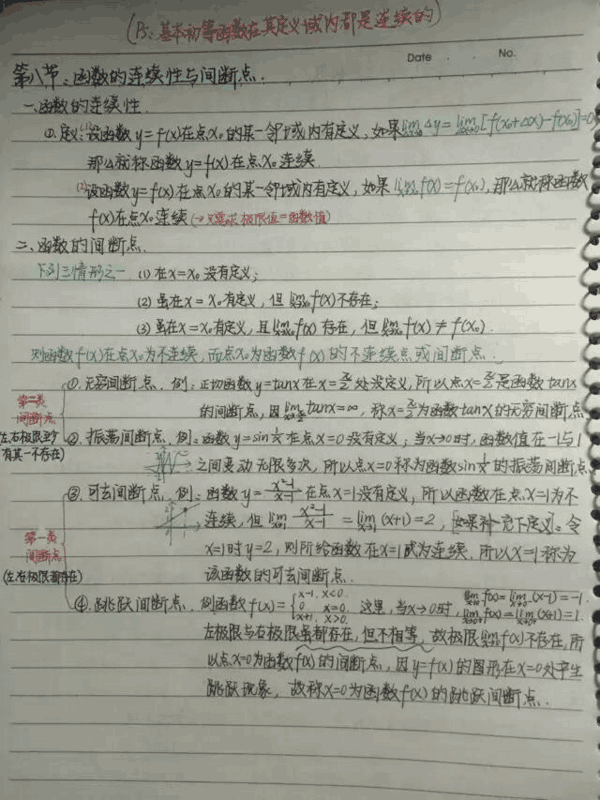 (Ps:基本初等函数在其定义域内都是连续的)
Date . . No.
第八节:函数的连续性与间断点.
一.函数的连续性.
①.定义:⑴设函数y=f(x)在点x₀的某一邻域内有定义,如果lim Δx→0 Δy=lim Δx→0[f(x₀+Δx)-f(x₀)]=0
那么就称函数y=f(x)在点x₀连续.
⑵设函数y=f(x)在点x₀的某一邻域内有定义,如果lim x→x₀ f(x)=f(x₀),那么就称函数
f(x)在点x₀连续(→只要求极限值=函数值)
二.函数的间断点.
下列三情形之一 (1)在x=x₀没有定义;
(2)虽在x=x₀有定义,但lim x→x₀ f(x)不存在;
(3)虽在x=x₀有定义,且lim x→x₀ f(x)存在,但lim x→x₀ f(x)≠f(x₀).
则函数f(x)在点x₀为不连续,而点x₀为函数f(x)的不连续点或间断点.
第二类
间断点
(左右极限至少
有其一不存在)
①.无穷间断点.例:正切函数y=tanx在x=π/2处没定义,所以点x=π/2是函数tanx
的间断点,因lim x→π/2 tanx=∞,称x=π/2为函数tanx的无穷间断点
②.振荡间断点.例:函数y=sin1/x在点x=0没有定义;当x→0时,函数值在-1与1
之间变动无限多次,所以点x=0称为函数sin1/x的振荡间断点
第一类
间断点
(左右极限都存在)
③.可去间断点.例:函数y=x²-1/x-1在点x=1没有定义,所以函数在点x=1为不
连续,但lim x→1 x²-1/x-1=lim x→1(x+1)=2,[如果补充下定义]:令
x=1时y=2,则所给函数在x=1成为连续.所以x=1称为
该函数的可去间断点.
④.跳跃间断点.例函数f(x)={x-1, x<0. 0 x=0. x+1, x>0. 这里,当x→0时,lim x→0⁻ f(x)=lim x→0⁻(x-1)=-1. lim x→0⁺ f(x)=lim x→0⁺(x+1)=1.
左极限与右极限虽都存在,但不相等,故极限lim x→0 f(x)不存在,所
以点x=0为函数f(x)的间断点,因y=f(x)的图形在x=0处产生
跳跃现象,故称x=0为函数f(x)的跳跃间断点.